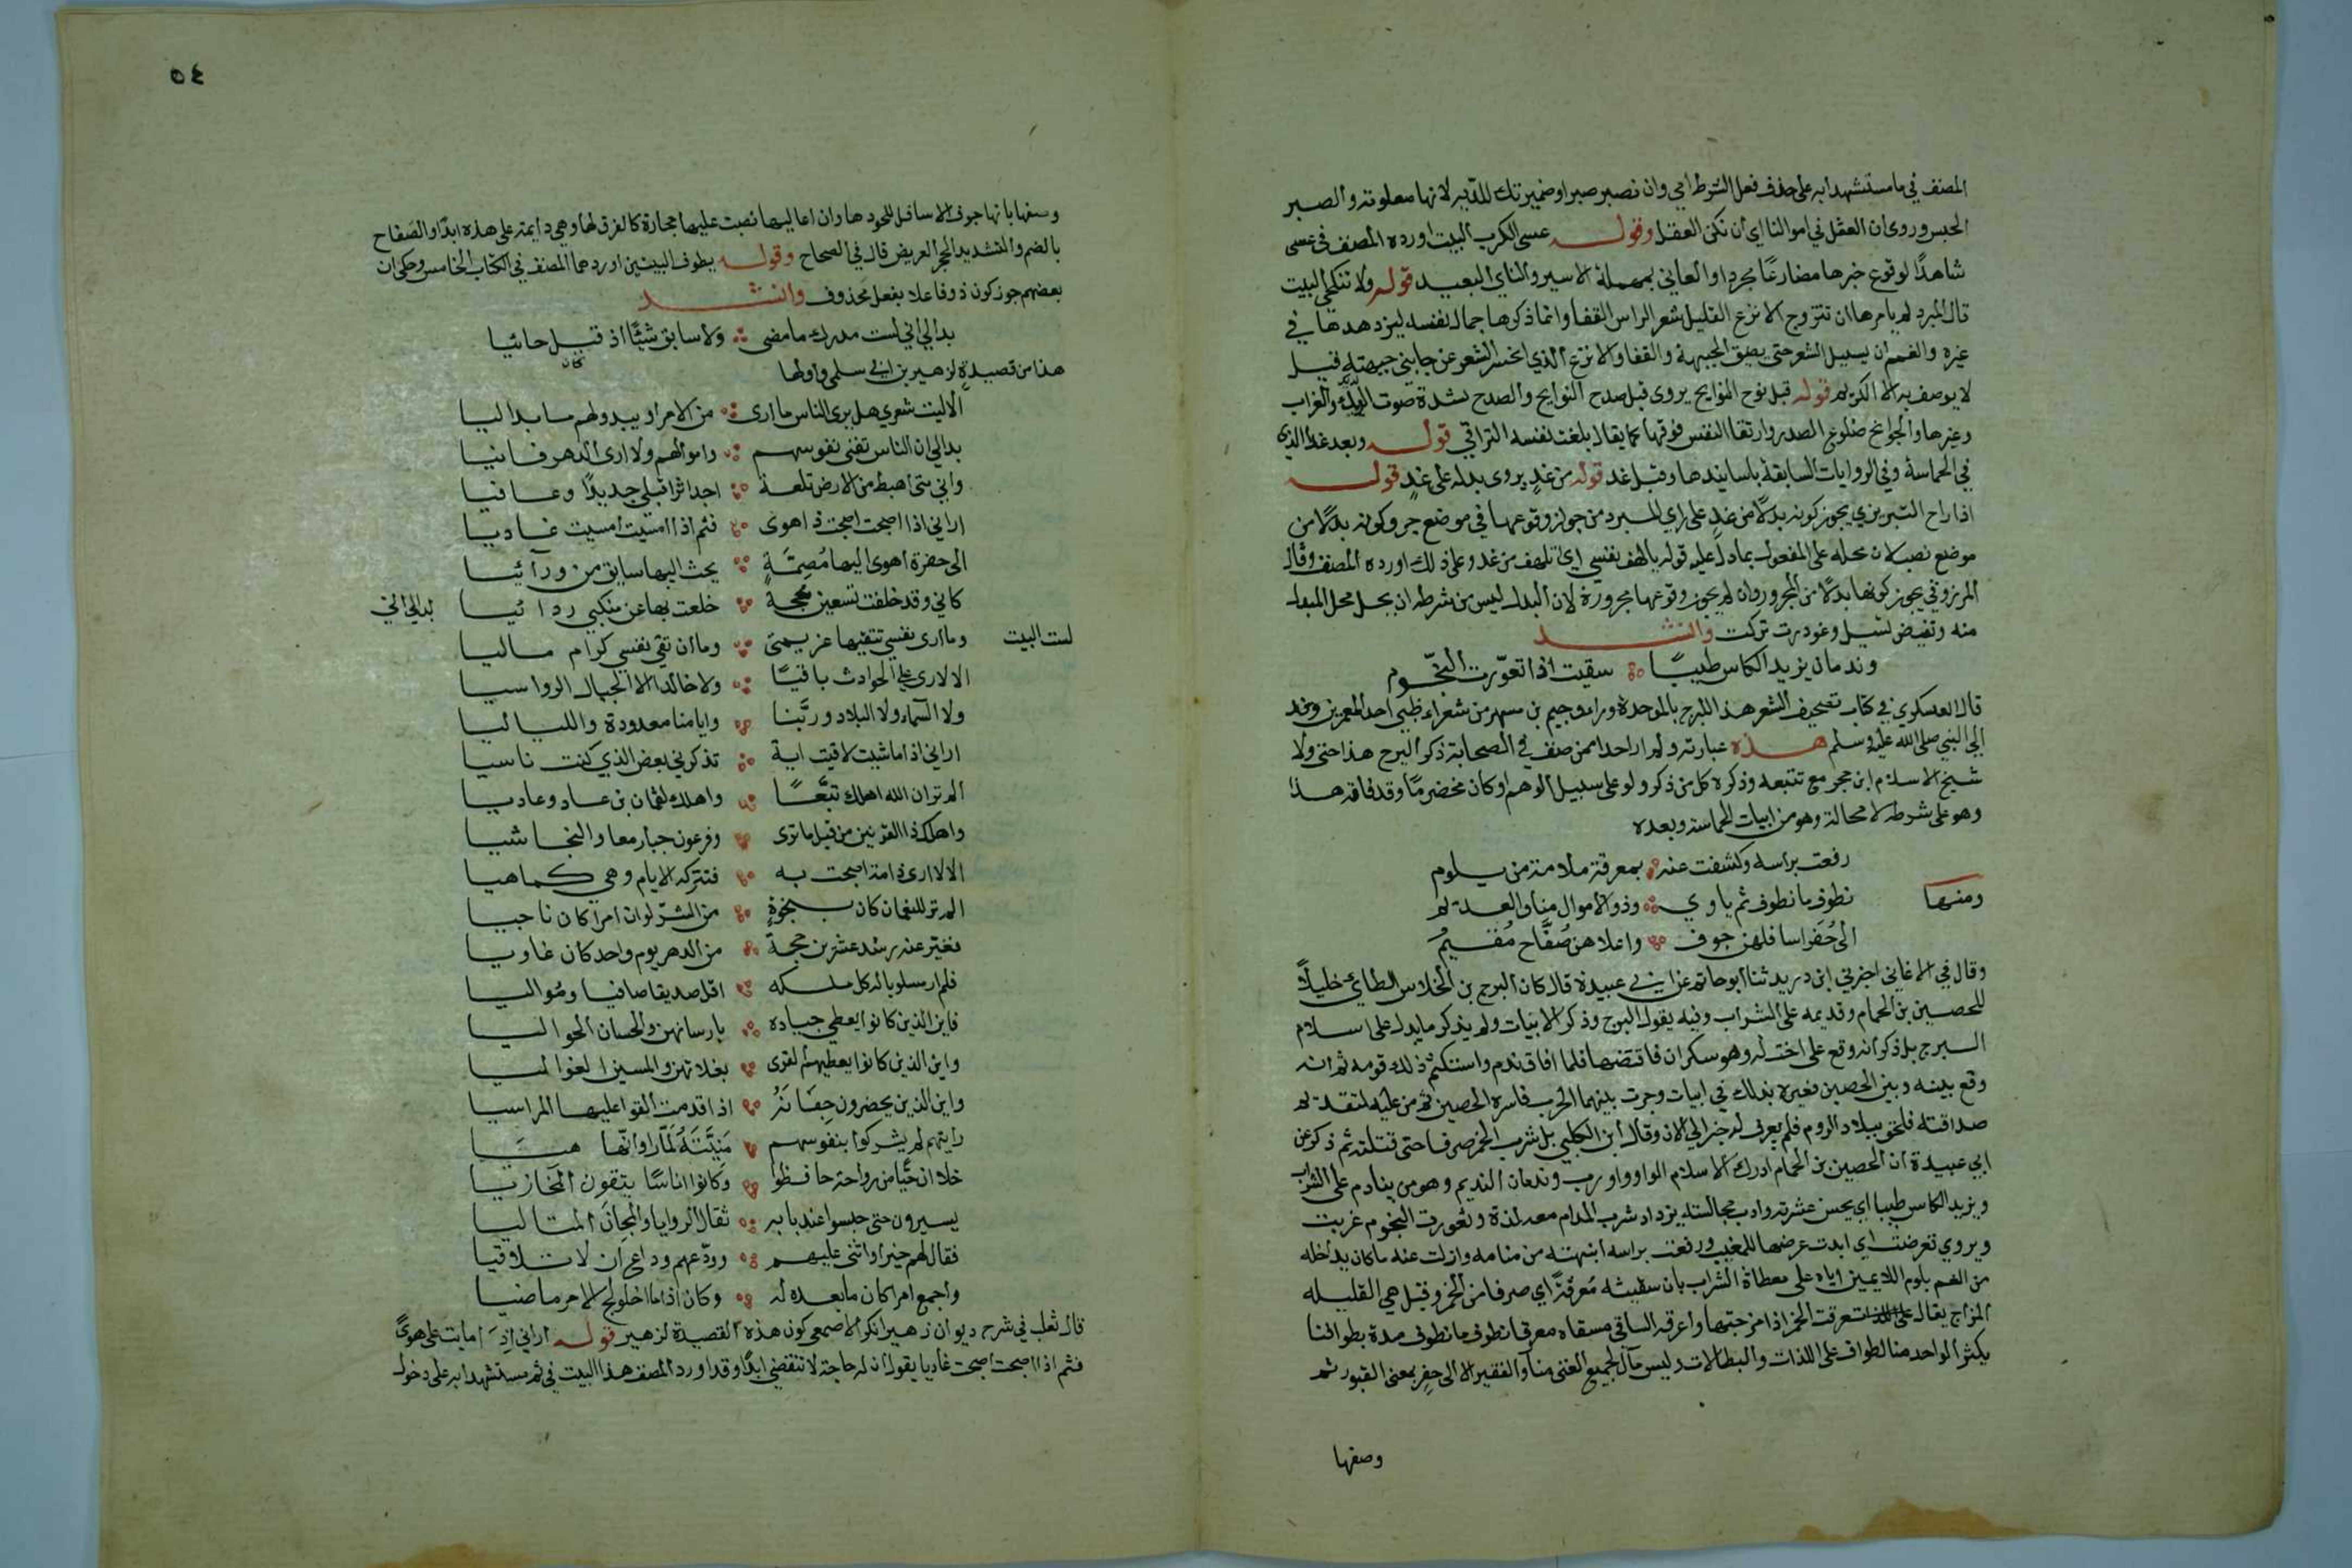 المصنف في ما مستشهدا به على حذف فعل الشرط اي وان نصبر صبرا وضمير تك للدّيه لانها معلومة والصبر
الحبس وروى ان العقل في اموالنا اي أن تكن العقل وقوله عسى الكرب البيت اورده المصنف في عسى
شاهدًا لوقوع خبرها مضارعًا مجردا والعاني بمهملة الاسير والنائ البعيد قوله ولا تنكحي البيت
قال المبرد لم يامرها ان تتزوج الانزع القليل شعر الراس القفا وانما ذكرها جمال نفسه ليزهدها في
غيره والغمم ان يسيل الشعر حتى يضيق الجبهة والقفا والانزع الذي انحسر الشعر عن جانبي جبهته قيل
لا يوصف به الا الكريم قوله قبل نوح النوايح يروى قبل صدح النوايح والصدح لشدة صوت الديك والغراب
وغيرها والجوانح ضلوع الصدر وارتقا النفس فوقها كما يقال بلغت نفسه التراقي قوله وبعد غد الذي
في الحماسة وفي الروايات السابقة باسانيدها وقبل غد قوله من غدٍ يروى بدله على غدٍ قوله
اذا راح التبريزي يجوز كونه بدلًا من غدٍ على راي المبرد من جواز وقوعها في موضع جر وكونه بدلًا من
موضع نصب لان محله على المفعول بما دل عليه قوله يالهف نفسي اي اتلهف من غد وعلى ذلك اورده المصنف وقال
المرزوقي يجوز كونها بدلًا من المجرور وان لم يجوز وقوعها مجرورة لان البدل ليس من شرطه ان يحل محل المبدل
منه وتفيض تسيل وغودرت تركت وانشد
وندمان يزيد الكاس طيبًا سقيت اذا تعوّرت النجّوم
قال العسكري في كتاب تصحيف الشعر هذا البرج بالموحدة وراء وجيم بن مسهر من شعراء طي احد المعمرين وفد
إلى النبي صلى الله عليه وسلم هذه عبارته ولم ار احدا ممن صنف في الصحابة ذكر البرج هذا حتى ولا
شيخ الاسلام ابن حجر مع تتبعه وذكره كل من ذكر ولو على سبيل الوهم او كان مخضرمًا وقد فاته هذا
وهو على شرطه لا محالة وهو من ابيات الحماسة وبعده
رفعت براسه وكشفت عنه بمعرقة ملامة من يلوم
ومنها نطوف ما نطوف ثم ياوي وذو الاموال منا والعديم
الى حُفَر اسافلهن جوف واعلاهن صُفّاح مُقيمُ
وقال في الاغاني اخبرني ابن دريد ثنا أبو حاتم عن ابي عبيدة قال كان البرج بن الخلاس الطائ خليلًا
للحصين بن الحمام وقديمه على الشراب وفيه يقول البرج وذكر الابيات ولم يذكر ما يدل على اسلام
البرج بل ذكر انه وقع على اخت له وهو سكران فاقتضها فلما افاق ندم واستكتم ذلك قومه ثم انه
وقع بينه وبين الحصين فعيره بذلك في ابيات وجرت بينهما الحرب فاسره الحصين ثم من عليه لتقدم
صداقته فلحق ببلاد الروم فلم يعرف له خبر الى الان وقال ابن الكلبي بل شرب الخمر صرفا حتى قتلته ثم ذكر عن
ابي عبيدة ان الحصين بن الحمام ادرك الاسلام الواو واو رب وندمان النديم وهو من ينادم على الشراب
ويزيد الكاس طيبا اي يحسن عشرته وادب مجالسته يزداد شرب المدام معه لذة وتعورت النجوم غربت
ويروي تعرضت اي ابدت عرضها للمغيب ورفعت براسه انبهته من منامه وازلت عنه ما كان يداخله
من الغم بلوم اللايمين اياه على معطاة الشراب بان سقيته مُعرقةً اي صرفا من الخمر وقيل هي القليلة
المزاج يقال تعرقت الخمر اذا مزجتها وأعرقه الساقي مسقاه معرقا نطوف ما نطوف مدة بطوافنا
يكثر الواحد منا الطواف على اللذات والبطالات وليس مآل لجميع الغني منا والفقير الا الى حفر بمعنى القبور ثم
وصفها
٥٤
وصفها بانها جوف الاسافل للحودها وان اعاليها نصبت عليها حجارة كالغرق لها وهي دايمة على هذه ابدًا والصَفاح
بالضم والتشديد الحجر العريض قال في الصحاح وقوله يطوف البيتين اوردهما المصنف في الكتاب الخامس وحكى ان
بعضهم جوز كون ذو فاعلا بفعل محذوف وانشد
بدا لي اني لست مدرك ما مضى ولا سابق شيًا اذ قيل جائيا
كان
هذا من قصيدةٍ لزهير بن ابي سلمى واولها
الا ليت شعري هل يرى الناس ما ارى من الامر او يبدو لهم ما بدا ليا
بدا لي ان الناس تفنى نفوسهم واموالهم ولا ارى الدهر فانيا
واني متى اهبط من الارض تلعة اجد اثرا قبلي جديدًا وعافيا
اراني اذا اصبحت اصبحت ذا هوى فثم اذا امسيت امسيت غاديا
الى حفرة اهوى اليها مُصِمّةٍ يحث اليها سايق من ورآئيا
كاني وقد خلفت تسعين حجة خلعت بها عن منكبي ردائيا بدا لي اني
لست البيت وما ارى نفسي تتقيها عزيمتي وما ان تقي نفسي كرام ماليا
الا لا ارى على الحوادث باقيًا ولا خالدا الا الجبال الرواسيا
ولا السماء ولا البلاد وربَّنا وايامنا معدودة واللياليا
اراني اذا ما شيت لاقيت اية تذكرني بعض الذي كنت ناسيا
الم تر ان الله اهلك تبّعًا واهلك لقمان بن عاد وعاديا
واهلك ذا القرنين من قبل ما ترى وفرعون جبار معا والنجاشيا
الا لا ارى ذا امة اصبحت به فتتركه الايام وهي كما هيا
الم تر للنعمان كان بنجوةٍ من الشرّ لو ان امرا كان ناجيا
فغيّر عنه رشد عشرين حجة من الدهر يوم واحد كان غاويا
فلم ار مسلوبا له كل ملكه اقل صديقا صافيا ومُواليا
فاين الذين كانوا يعطي جياده بارسانهن والحسان الحواليا
واين الذين كانوا يعطيهم القرى بغلاتهن والمسين الغواليا
واين الذين يحضرون جِفَانَهُ اذا قدمت القوا عليها المراسيا
رايتهم لم يشركوا بنفوسهم مَنِيَّتَهُ لَمّا راوا انّها هيَا
خلا ان حيًّا من رواحة حافظوا وكانوا اناسًا يتقون المخازيا
يسيرون حتى حبسوا عند بابه ثقال الروايا والهِجانَ المتاليا
فقال لهم خيرا واثنى عليهم وودّعهم وداع ان لا تلاقيا
وأجمع امرا كان ما بعده له وكان اذا ما اخلولج الامر ماضيا
قال ثعلب في شرح ديوان زهير انكر الاصمعي كون هذه القصيدة لزهير قوله اراني إِذا ما بت على هوىً
فثم اذا اصبحت اصبحت غاديا يقول ان له حاجة لا تنقضي ابدًا وقد اورد المصنف هذا البيت في ثم مستشهدا به على دخول